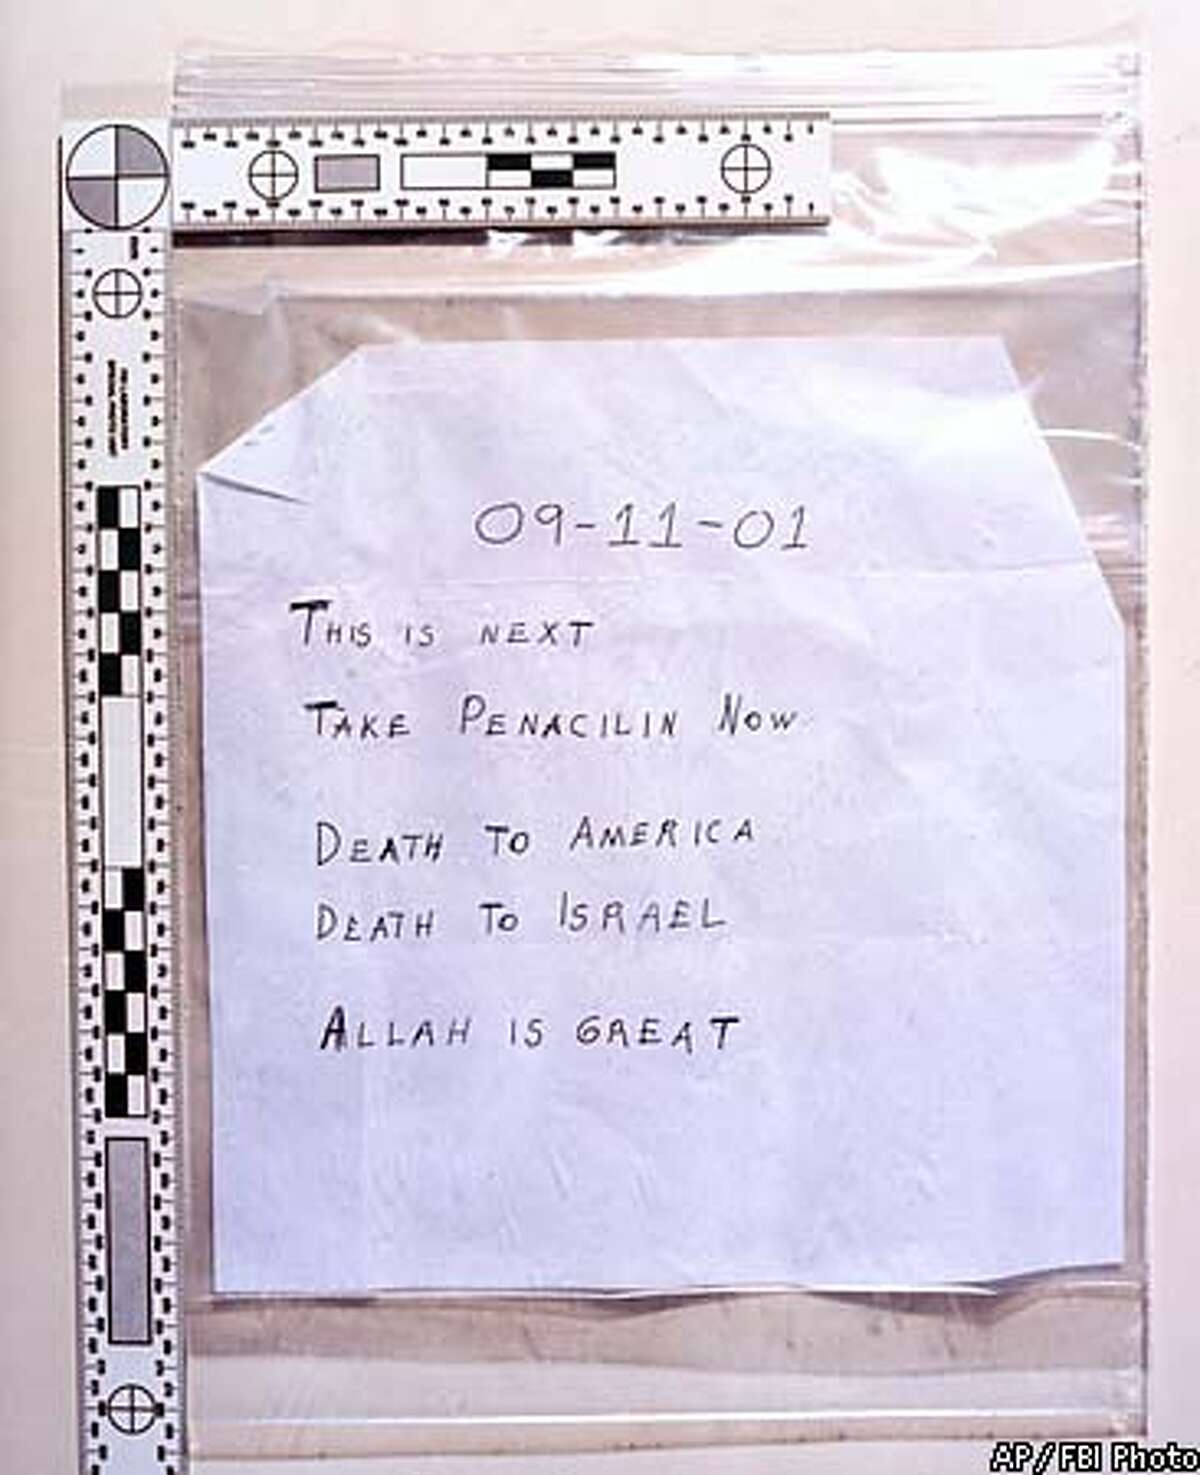 09-11-01
THIS IS NEXT
TAKE PENACILIN NOW
DEATH TO AMERICA
DEATH TO ISRAEL
ALLAH IS GREAT
AP/FBI Photo